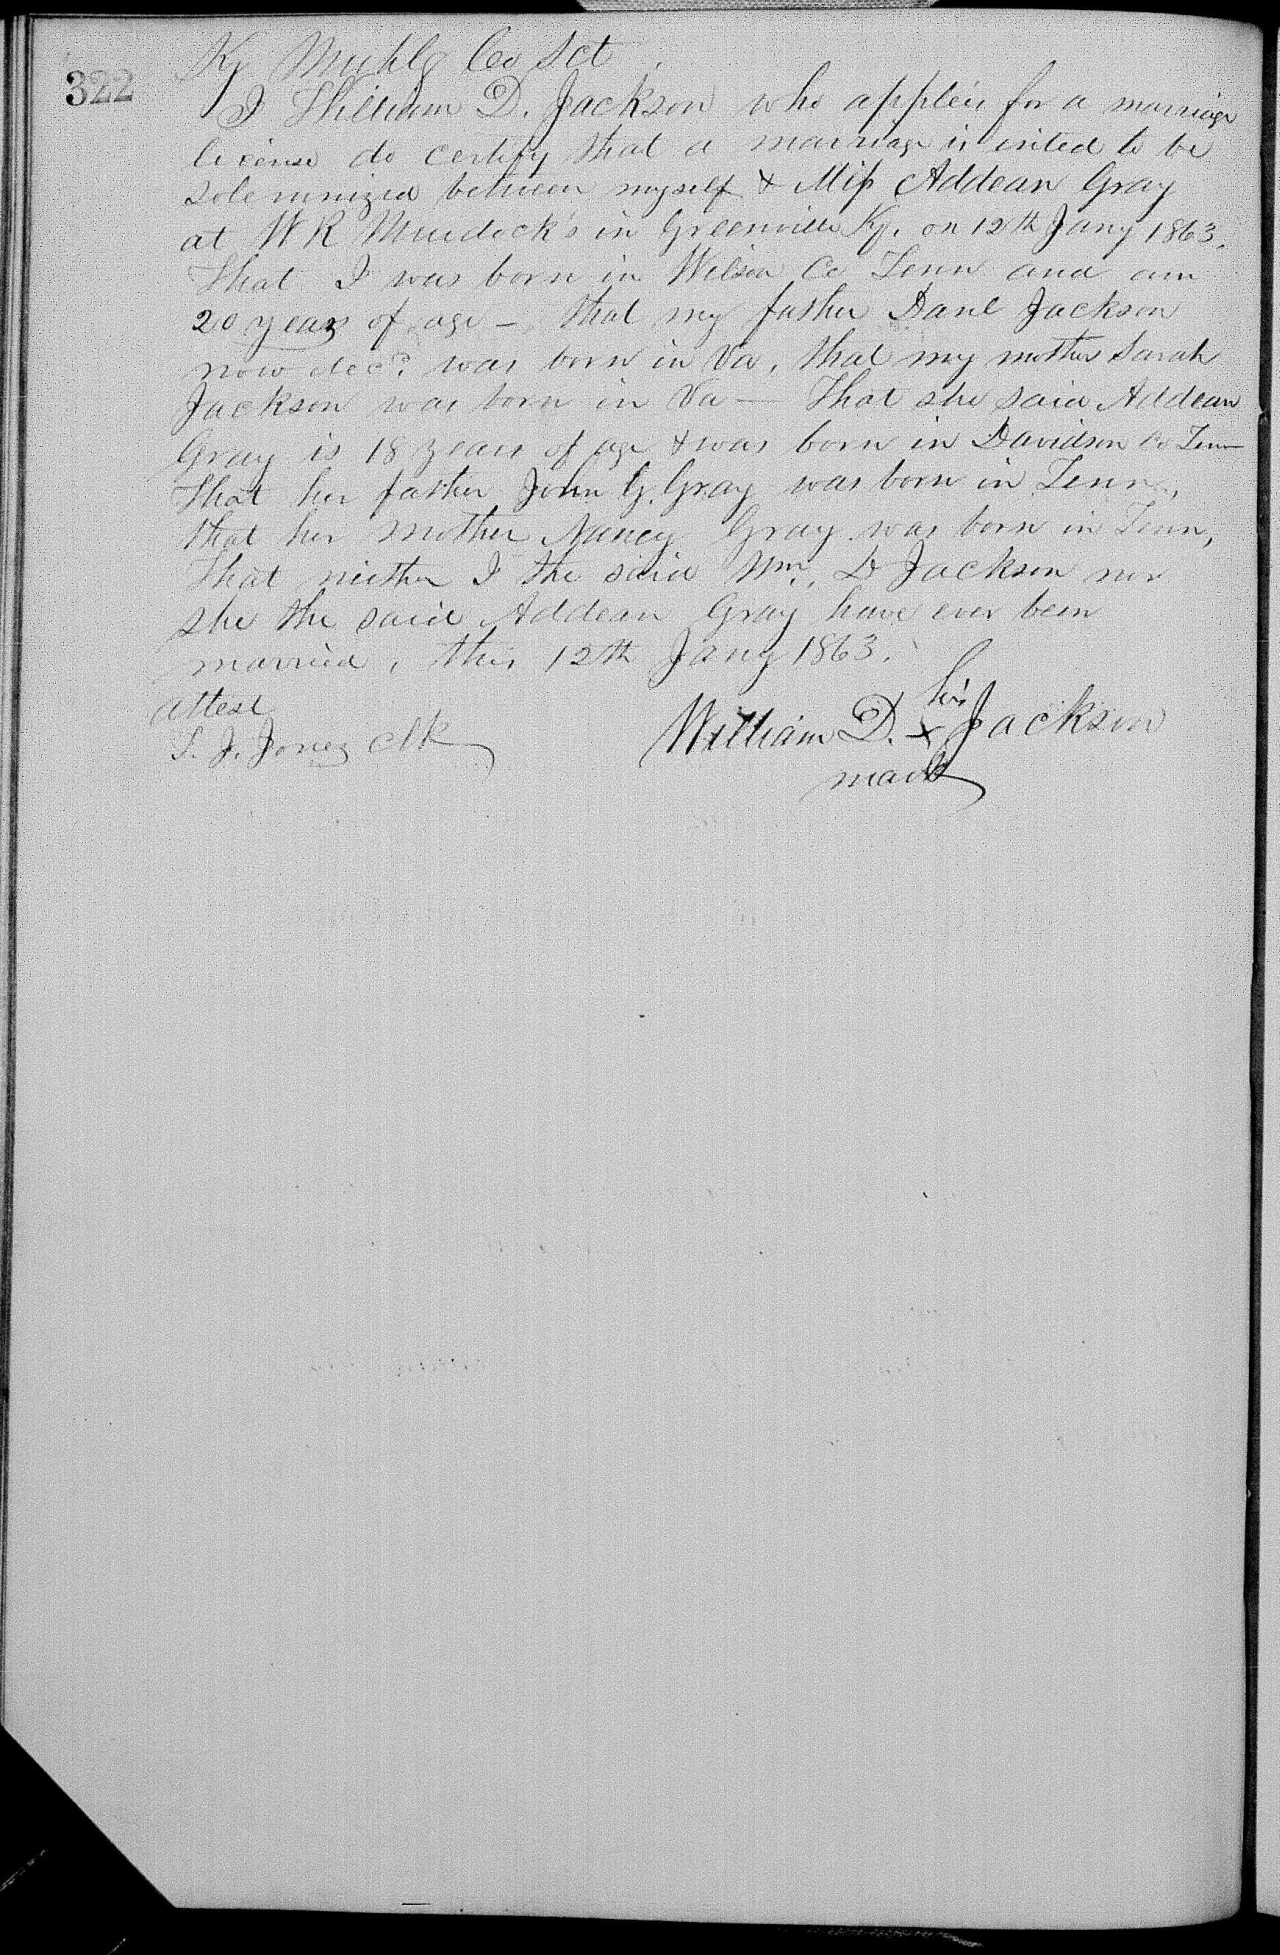 322
Ky Muhlg Co Sct
I William D. Jackson who applies for a marriage
license do certify that a marriage is inited to be
solemnized between myself & Miss Addean Gray
at W R Murdock's in Greenville Ky. on 12th Jany 1863.
That I was born in Wilson Co Tenn and am
20 years of age – that my father Danl Jackson
now decd. was born in Va. that my mother Sarah
Jackson was born in Va — That she said Addean
Gray is 18 years of age & was born in Davidson Co Tenn
That her father John G. Gray was born in Tenn.,
that her mother Nancy Gray was born in Tenn,
that neither I the said Wm. D Jackson nor
she the said Addean Gray have ever been
married, this 12th Jany 1863.
attest
T. J. Jones clk
his
William D. x Jackson
mark